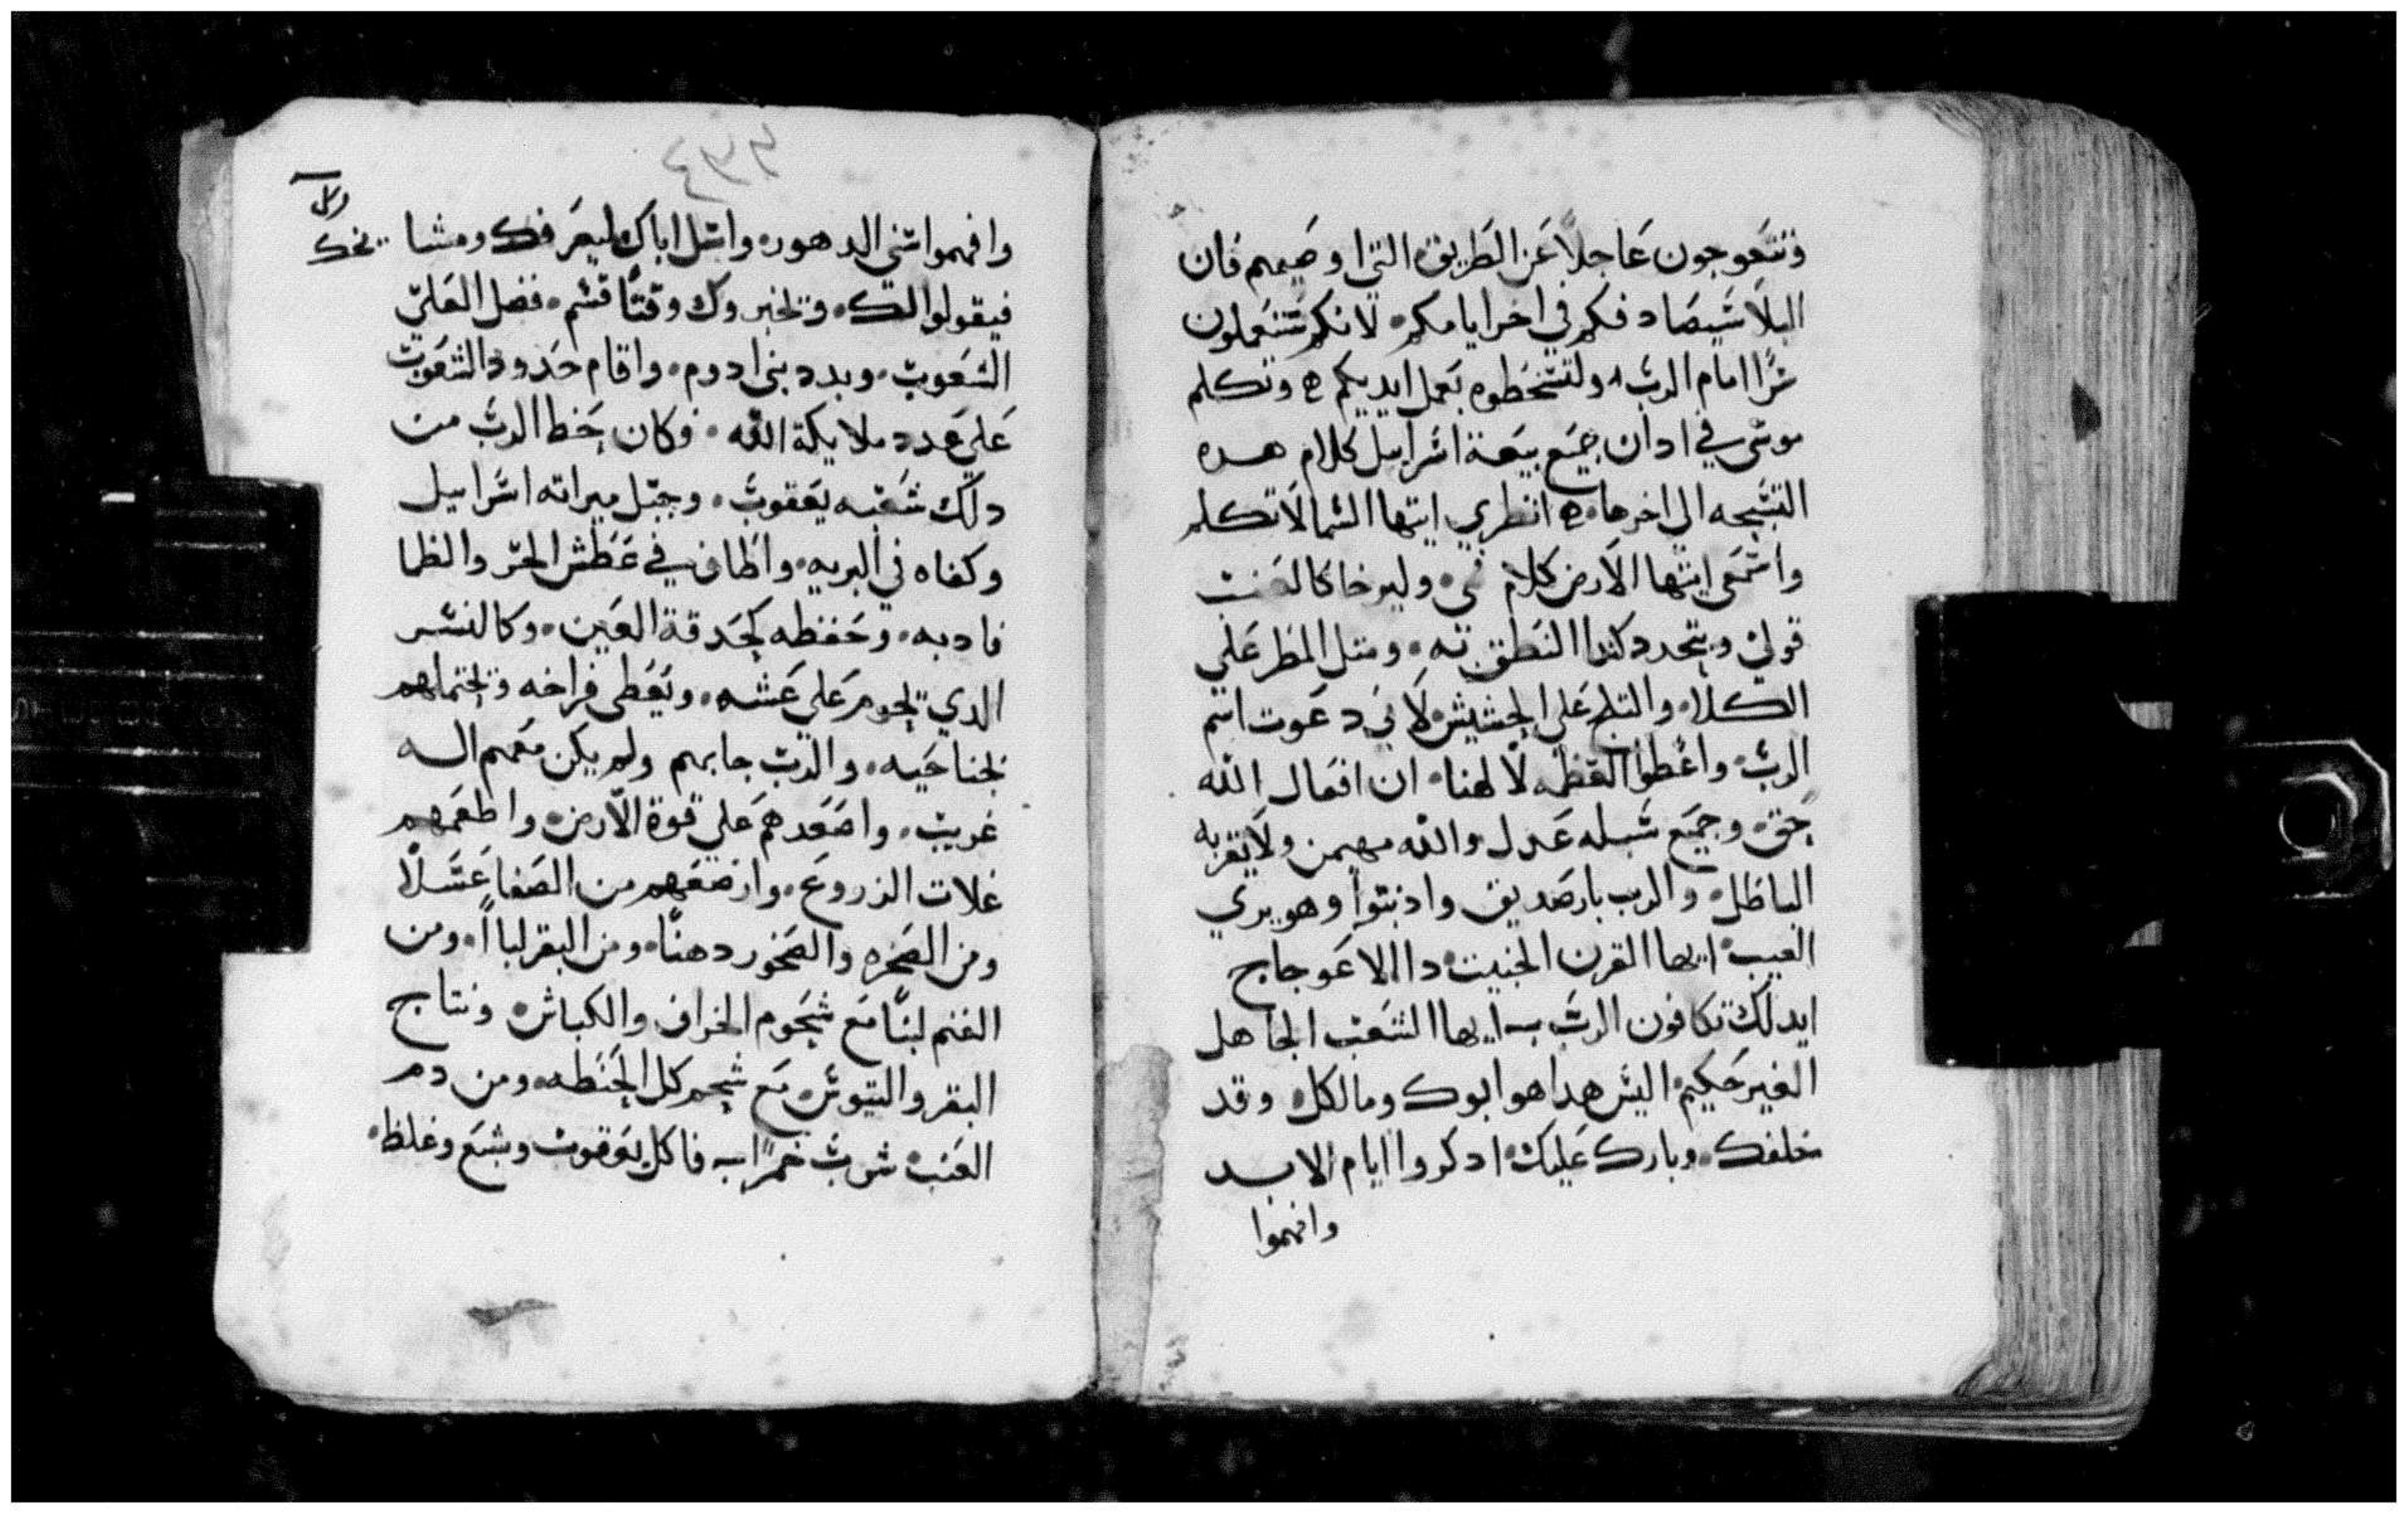 وتتعوجون عاجلاً عن الطريق التي اوصيهم فان
البلا سيصادفكم في اخر ايامكم لانكم ستعملون
شرًا امام الرب ولتسخطوه بعمل ايديكم ه وتكلم
موسى في ادان جميع بيعة اسراييل كلام هده
التسبحه الي اخرها ه انطري ايتها السما لاتكلم
واسمعى ايتها الارض كلام في وليرخا كالغيث
قولي ويتحدر كندا النطق به ومتل المطر علي
الكلاء والتلج علي الحشيش لاني دعوت اسم
الرب واعطوا العظمه لالهنا ان افعال الله
حق وجميع سبله عدل والله مهيمن ولا يقربه
الباطل والرب بار صديق وادنبوا وهو بري
العيب ايها القرن الخبيت دا الاعوجاج
ايدلك تكافون الرب ايها الشعب الجاهل
الغير حكيم اليس هدا هو ابوك ومالكك وقد
خلقك وبارك عليك ادكروا ايام الابد
وافهموا
٤٣٣
وافهموا سني الدهور واسل اباك ليعرفك ومشايخك
فيقولوا لك ويخبروك وقتًا قسم فضل العلي
الشعوب وبدد بني ادوم واقام حدود الشعوب
علي عدد ملايكة الله فكان حظ الرب من
دلك شعبه يعقوب وحبل ميراته اسراييل
وكفاه في البريه واطاف في عطش الحر والظما
فادبه وحفظه كحدقة العين وكالنسر
الدي يحوم علي عشه ويغطي فراخه ويحتملهم
بجناحيه والرب جابهم ولم يكن معهم اله
غريب واصعدهم علي قوة الارض واطعمهم
غلات الزروع وارضعهم من الصفا عسلاً
ومن الصخره والصخور دهنًا ومن البقر لباأ ومن
الغنم لبنًا مع شحوم الخراف والكباش ونتاج
البقر والتيوس مع شحم كل الحنطه ومن دم
العنب شرب خمرًا فاكل يعقوب وشبع وغلظ